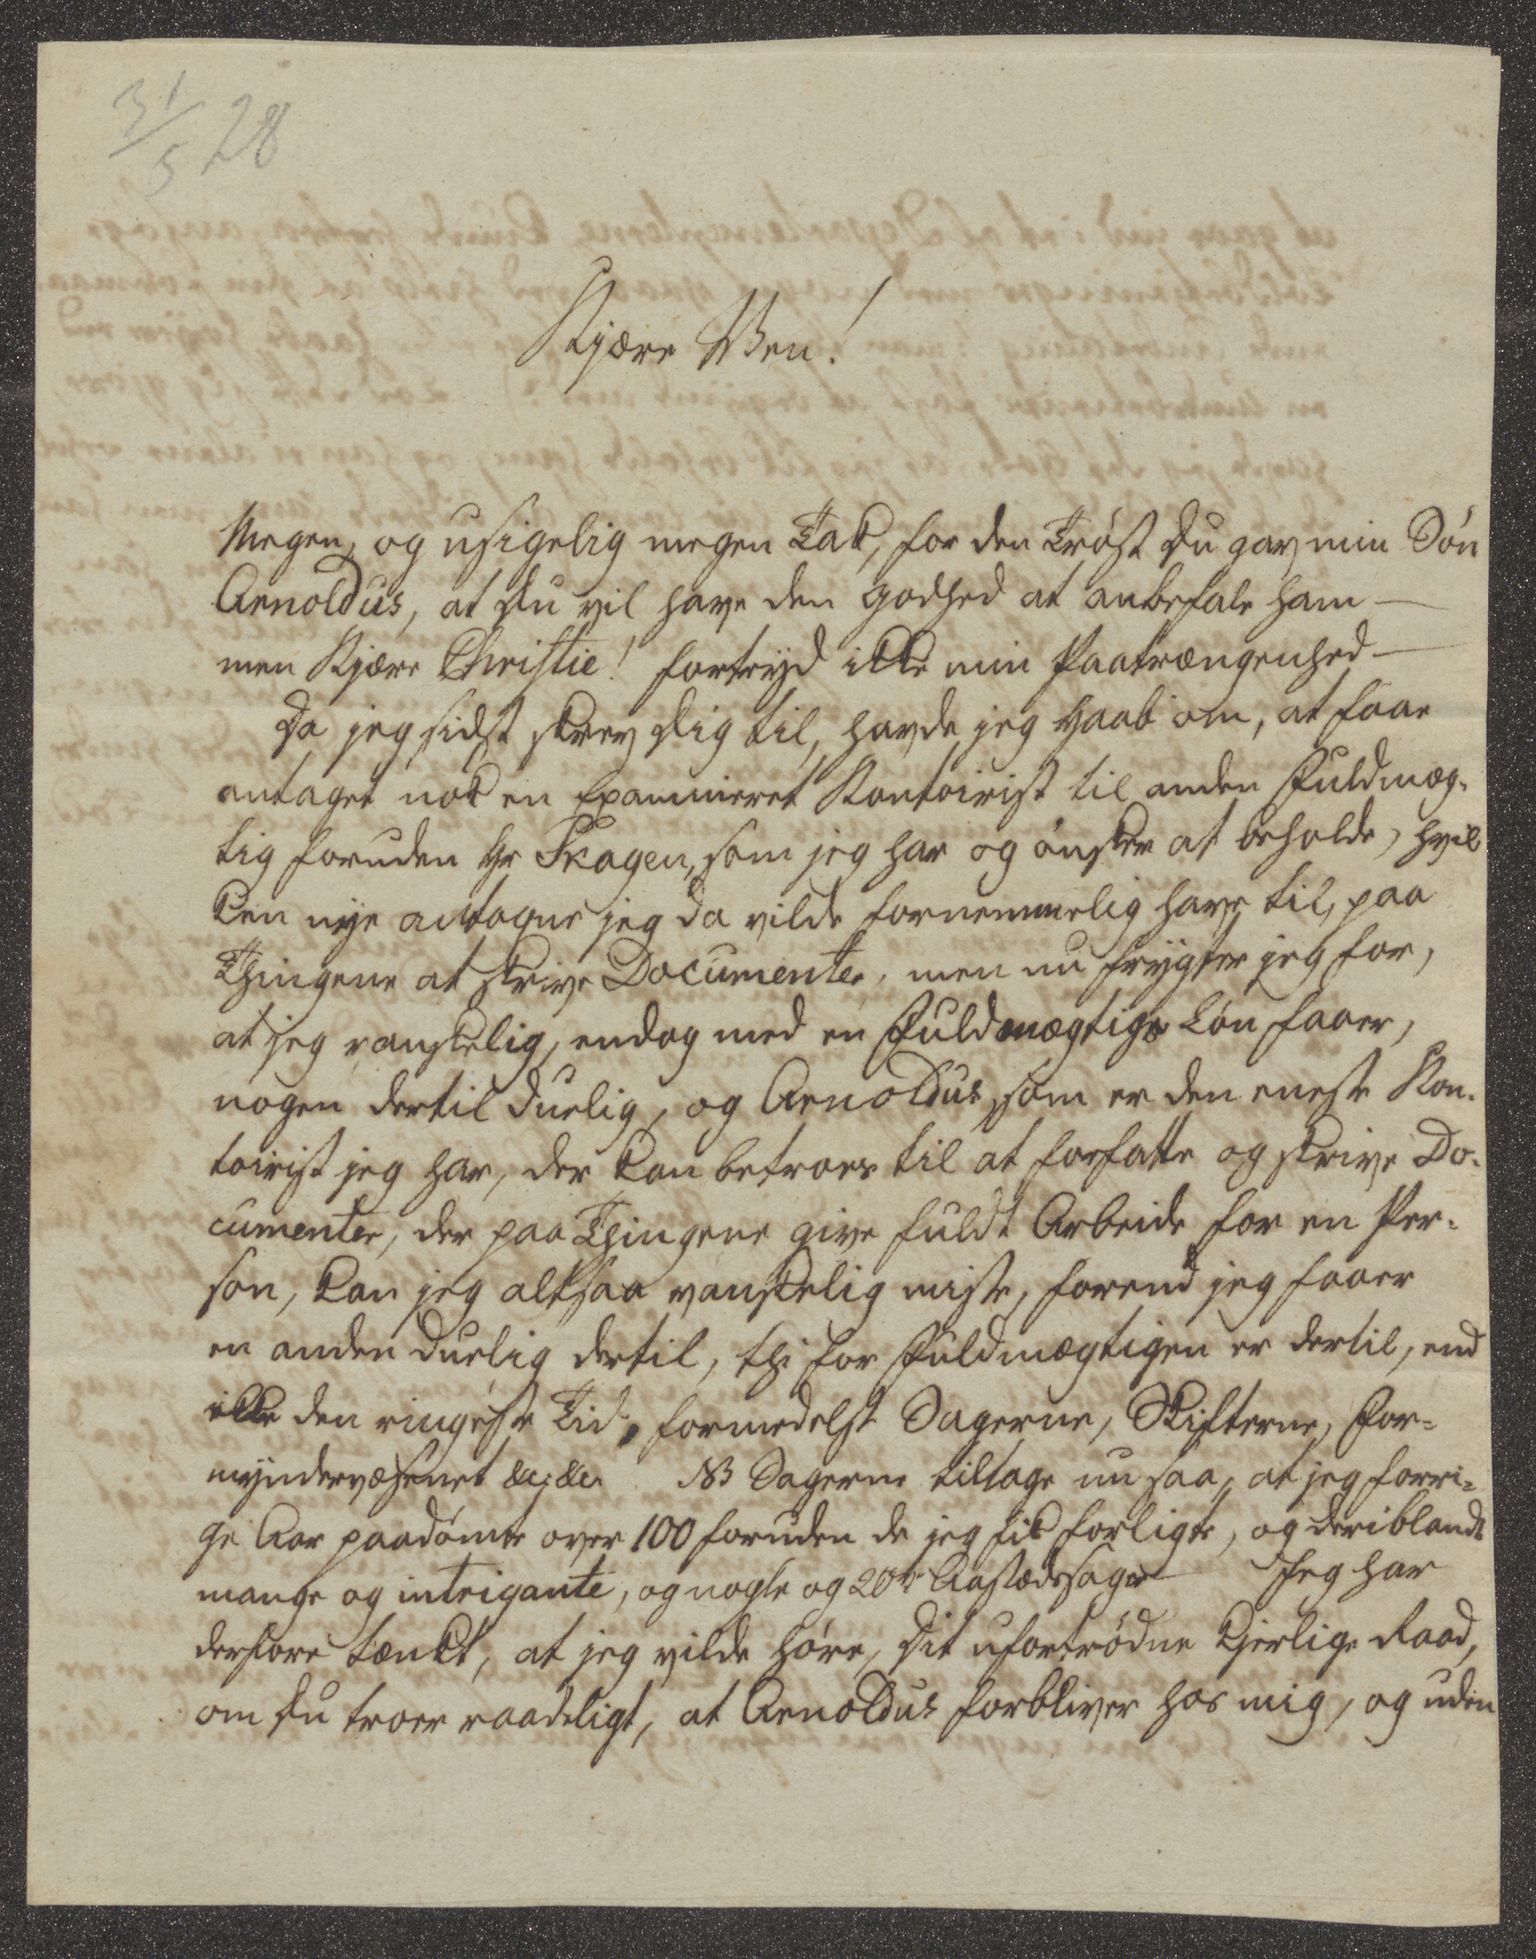 31/5 28
Kjære Ven!
Megen, og usigelig megen Tak, for den Trøst Du gav min Søn
Arnoldus, at Du vil have den Godhed at anbefale ham —
men Kjære Christie! fortryd ikke min Paatrængenhed —
Da jeg sidst skrev Dig til, havde jeg Haab om, at faae
antaget nok en Examineret Kontoirist til anden Fuldmæg-
tig foruden Hr Skagen, som jeg har og ønsker at beholde, hvil
ken nye antagne jeg da vilde fornemmelig have til, paa
Thingene at skrive Documenter, men nu frygter jeg for,
at jeg vanskelig, endog med en Fuldmægtigs Løn faaer,
nogen dertil duelig, og Arnoldus, som er den eneste Kon-
toirist jeg har, der kan betroes til at forfatte og skrive Do-
cumenter, der paa Thingene give fuldt Arbeide for en Per-
son, kan jeg altsaa vanskelig miste, forend jeg faaer
en anden duelig dertil, thi for Fuldmægtigen er dertil, end
ikke den ringeste Tid, formedelst Sagerne, Skifterne, For-
myndervæsenet &c; &c. NB Sagerne tiltage nu saa, at jeg forri-
ge Aar paadømte over 100 foruden de jeg fik forligte, og deriblandt
mange og intrigante, og nogle og 20ve Aastædssager Jeg har
derfore tænkt, at jeg vilde høre, Dit ufortrødne kjerlige Raad,
om Du troer raadeligt, at Arnoldus forbliver hos mig, og uden